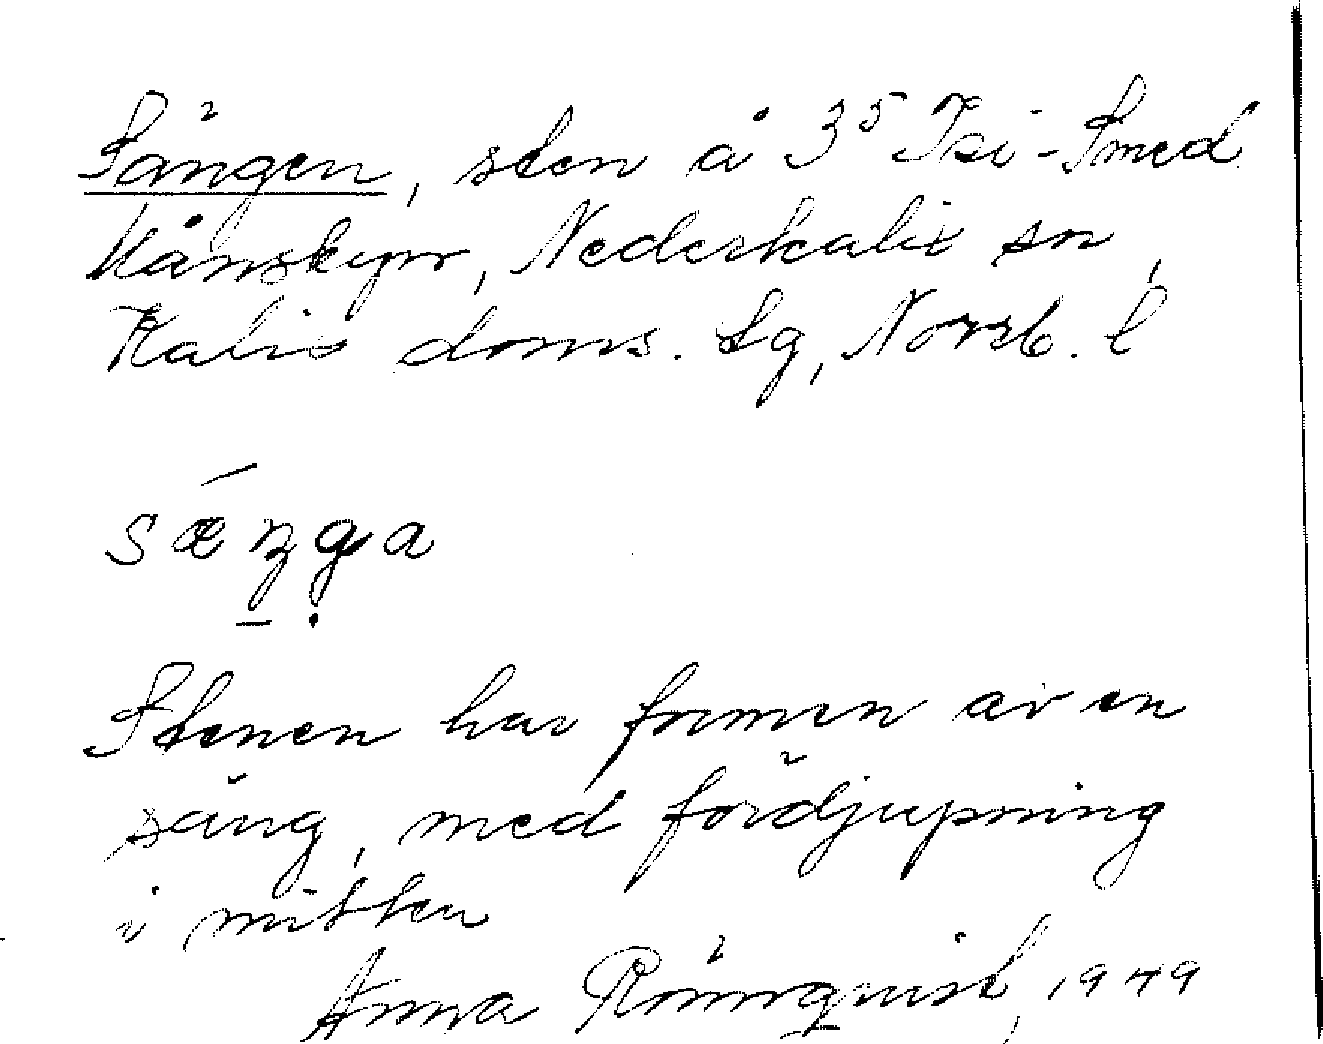 Sängen, sten å 3⁵ Isi-Smed
Månskyr, Nederkalix sn,
Kalix doms. lg, Norrb. l
sæŋga
Stenen har formen av en
säng, med fördjupning
i mitten
Anna Rönnqvist, 1949